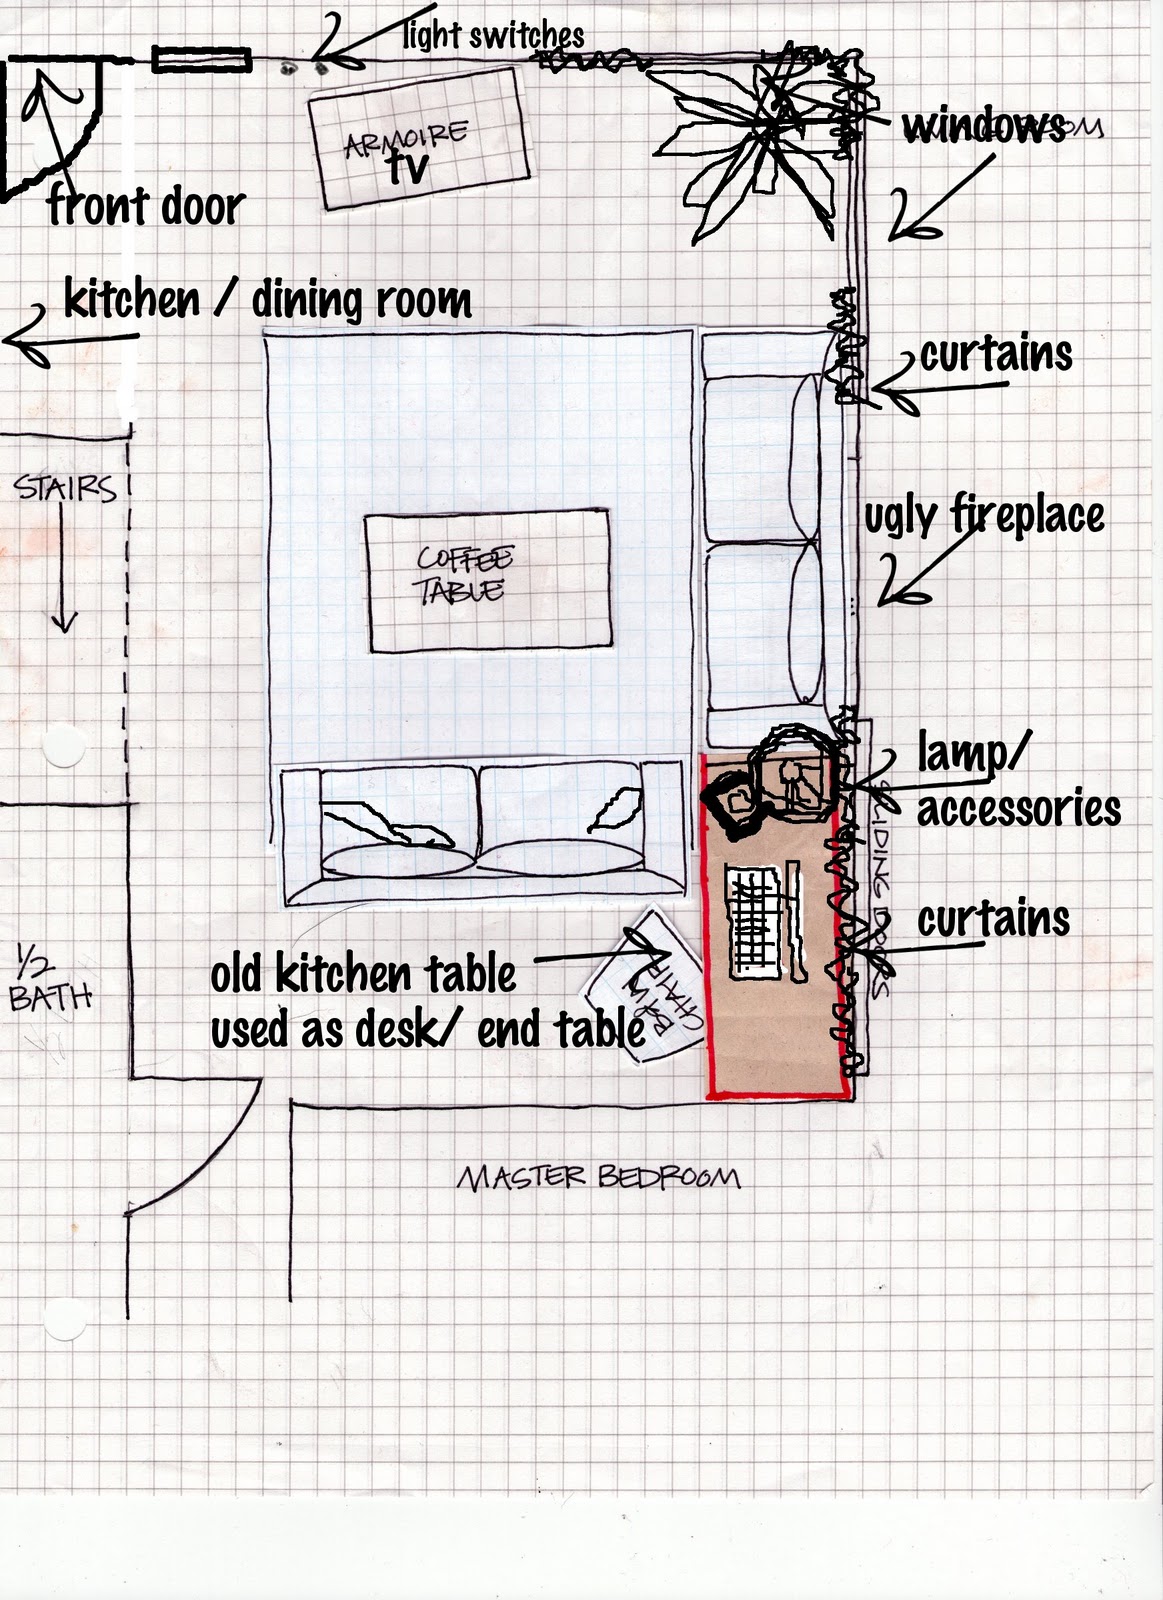 light switches
ARMOIRE
tv
windows
front door
kitchen / dining room
curtains
STAIRS
ugly fireplace
COFFEE
TABLE
lamp/
accessories
SLIDING DOORS
curtains
1/2
BATH
old kitchen table
used as desk/ end table
CHAIR
MASTER BEDROOM